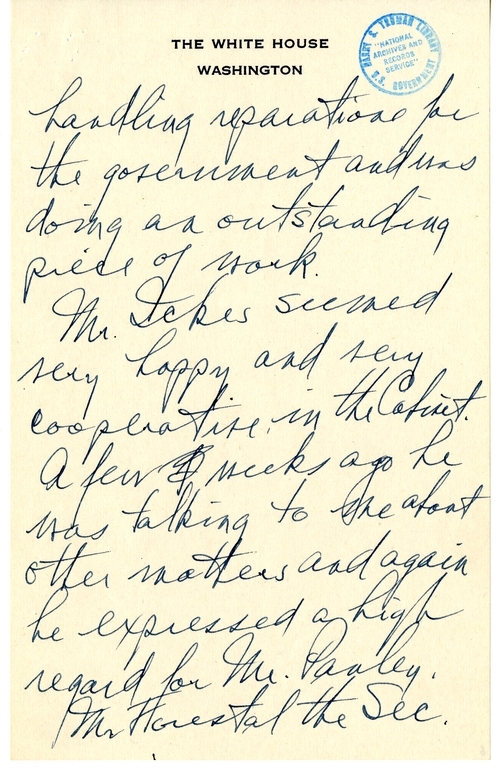 THE WHITE HOUSE
WASHINGTON
HARRY S. TRUMAN LIBRARY
"NATIONAL
ARCHIVES AND
RECORDS
SERVICE"
U.S. GOVERNMENT
handling reparations for
the government and was
doing an outstanding
piece of work.
Mr. Ickes seemed
very happy and very
cooperative in the Cabinet.
A few weeks ago he
was talking to me about
other matters and again
he expressed a high
regard for Mr. Pauley.
Mr Forestal the Sec.